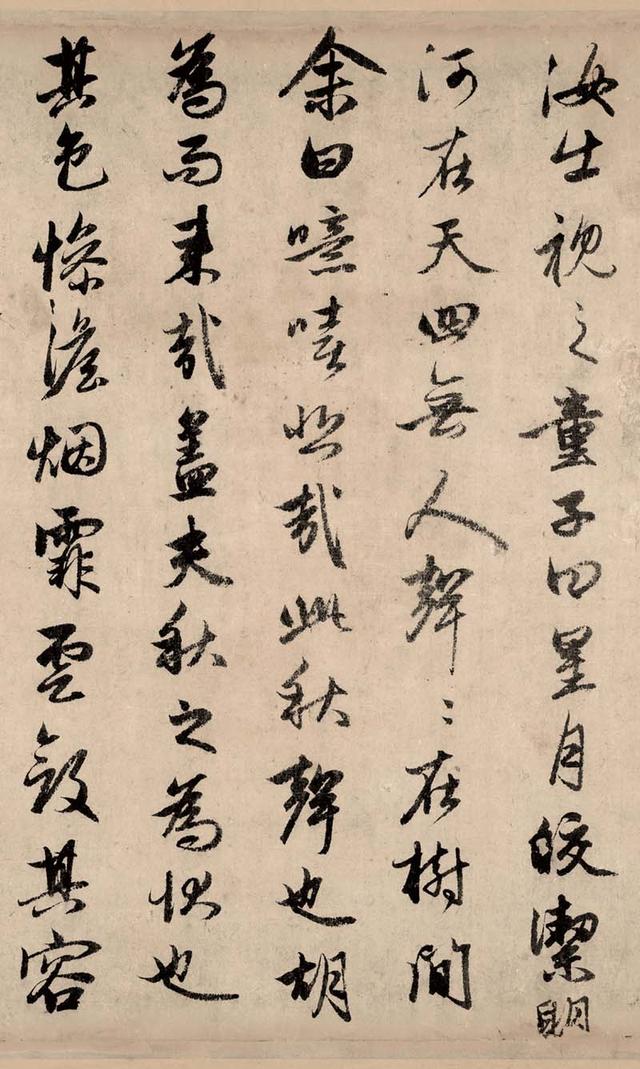 汝出視之童子曰星月皎潔明
河在天四無人聲〻在樹間
余曰噫嘻悲哉此秋聲也胡
為而来哉盖夫秋之為狀也
其色慘澹烟霏雲斂其容